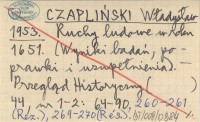 CZAPLIŃSKI Władysław
1953. Ruchy ludowe w roku
1651. (Wyniki badań, po-
prawki i uzupełnienia). —
Przegląd Historyczny
44, nr 1-2: 64-90, 260-261
(Rez.), 269-270 (Rés.)